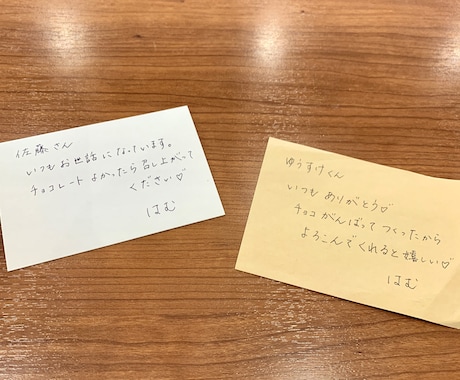 佐藤さん
いつもお世話になっています。
チョコレートよかったら召し上がって
ください♡
はむ
ゆうすけくん
いつもありがとう♡
チョコがんばってつくったから
よろこんでくれると嬉しい♡
はむ